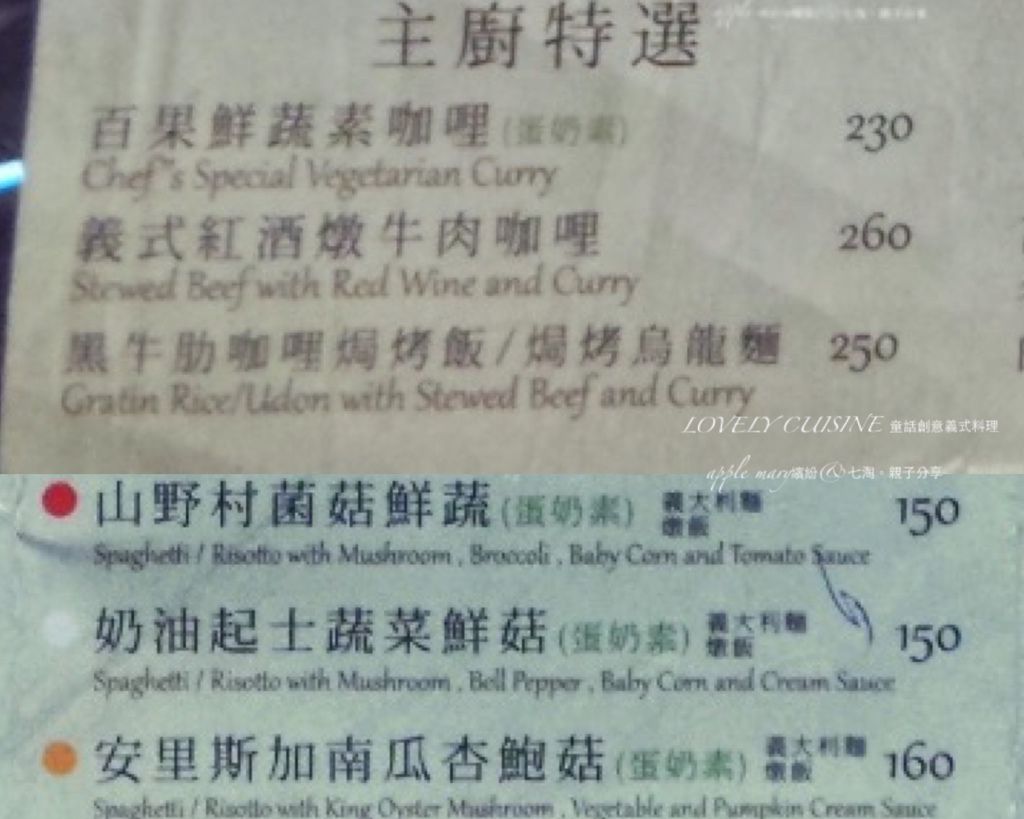 主廚特選
百果鮮蔬素咖哩(蛋奶素) 230
Chef"s Special Vegetarian Curry
義式紅酒燉牛肉咖哩 260
Stewed Beef with Red Wine and Curry
黑牛肋咖哩焗烤飯/焗烤烏龍麵 250
Gratin Rice/Udon with Stewed Beef and Curry
LOVELY CUISINE 童話創意義式料理
apple mary繽紛@七淘・親子分享
山野村菌菇鮮蔬(蛋奶素) 義大利麵 燉飯 150
Spaghetti / Risotto with Mushroom , Broccoli , Baby Corn and Tomato Sauce
奶油起士蔬菜鮮菇(蛋奶素) 義大利麵 燉飯 150
Spaghetti / Risotto with Mushroom , Bell Pepper , Baby Corn and Cream Sauce
安里斯加南瓜杏鮑菇(蛋奶素) 義大利麵 燉飯 160
Spaghetti / Risotto with King Oyster Mushroom , Vegetable and Pumpkin Cream Sauce